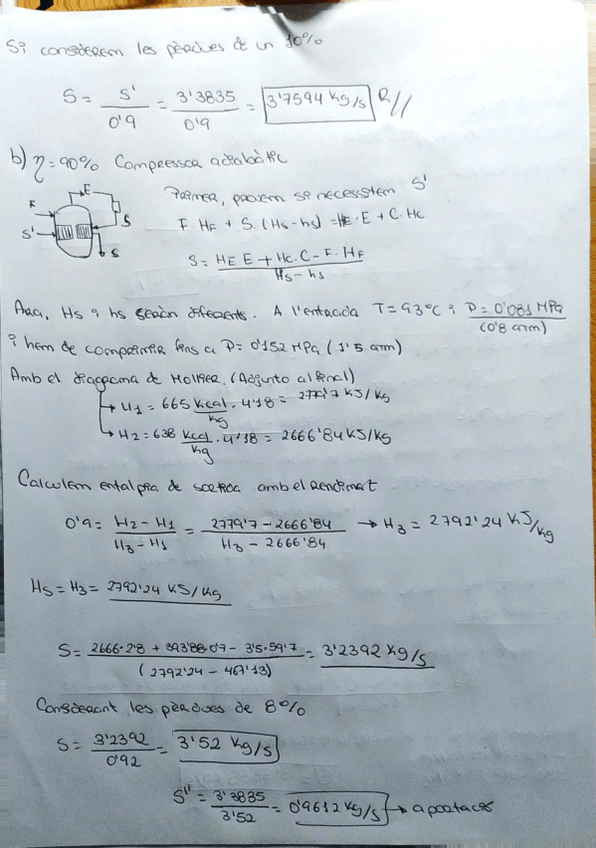 Si considerem les pèrdues de un 10%
S = S' / 0'9 = 3'3835 / 0'9 = 3'7594 kg/s R//
b) η = 90% Compressor adiabàtic
E
F
S'
S
S
Primer, provem si necessitem S'
F. HF + S. (Hs - hs) = HE · E + C. Hc
S = HE E + Hc. C - F. HF / Hs - hs
Ara, Hs i hs seràn diferents. A l'entrada T = 93°C i P = 0'081 MPa
(0'8 atm)
i hem de comprimir fins a P = 0'152 MPa (1'5 atm)
Amb el diagrama de Mollier. (Adjunto al final)
→ H1 = 665 kcal/kg . 4'18 = 2779'7 kJ/kg
→ H2 = 638 kcal/kg . 4'18 = 2666'84 kJ/kg
Calculem entalpia de sortida amb el rendiment
0'9 = H2 - H1 / H3 - H1 = 2779'7 - 2666'84 / H3 - 2666'84 → H3 = 2792'24 kJ/kg
Hs = H3 = 2792'24 kJ/kg
S = 2666·2'8 + 393'88·0'7 - 3'5·59'7 / (2792'24 - 467'13) = 3'2392 kg/s
Considerant les pèrdues de 8%
S = 3'2392 / 0'92 = 3'52 kg/s
S'' = 3'3835 / 3'52 = 0'9612 kg/s →